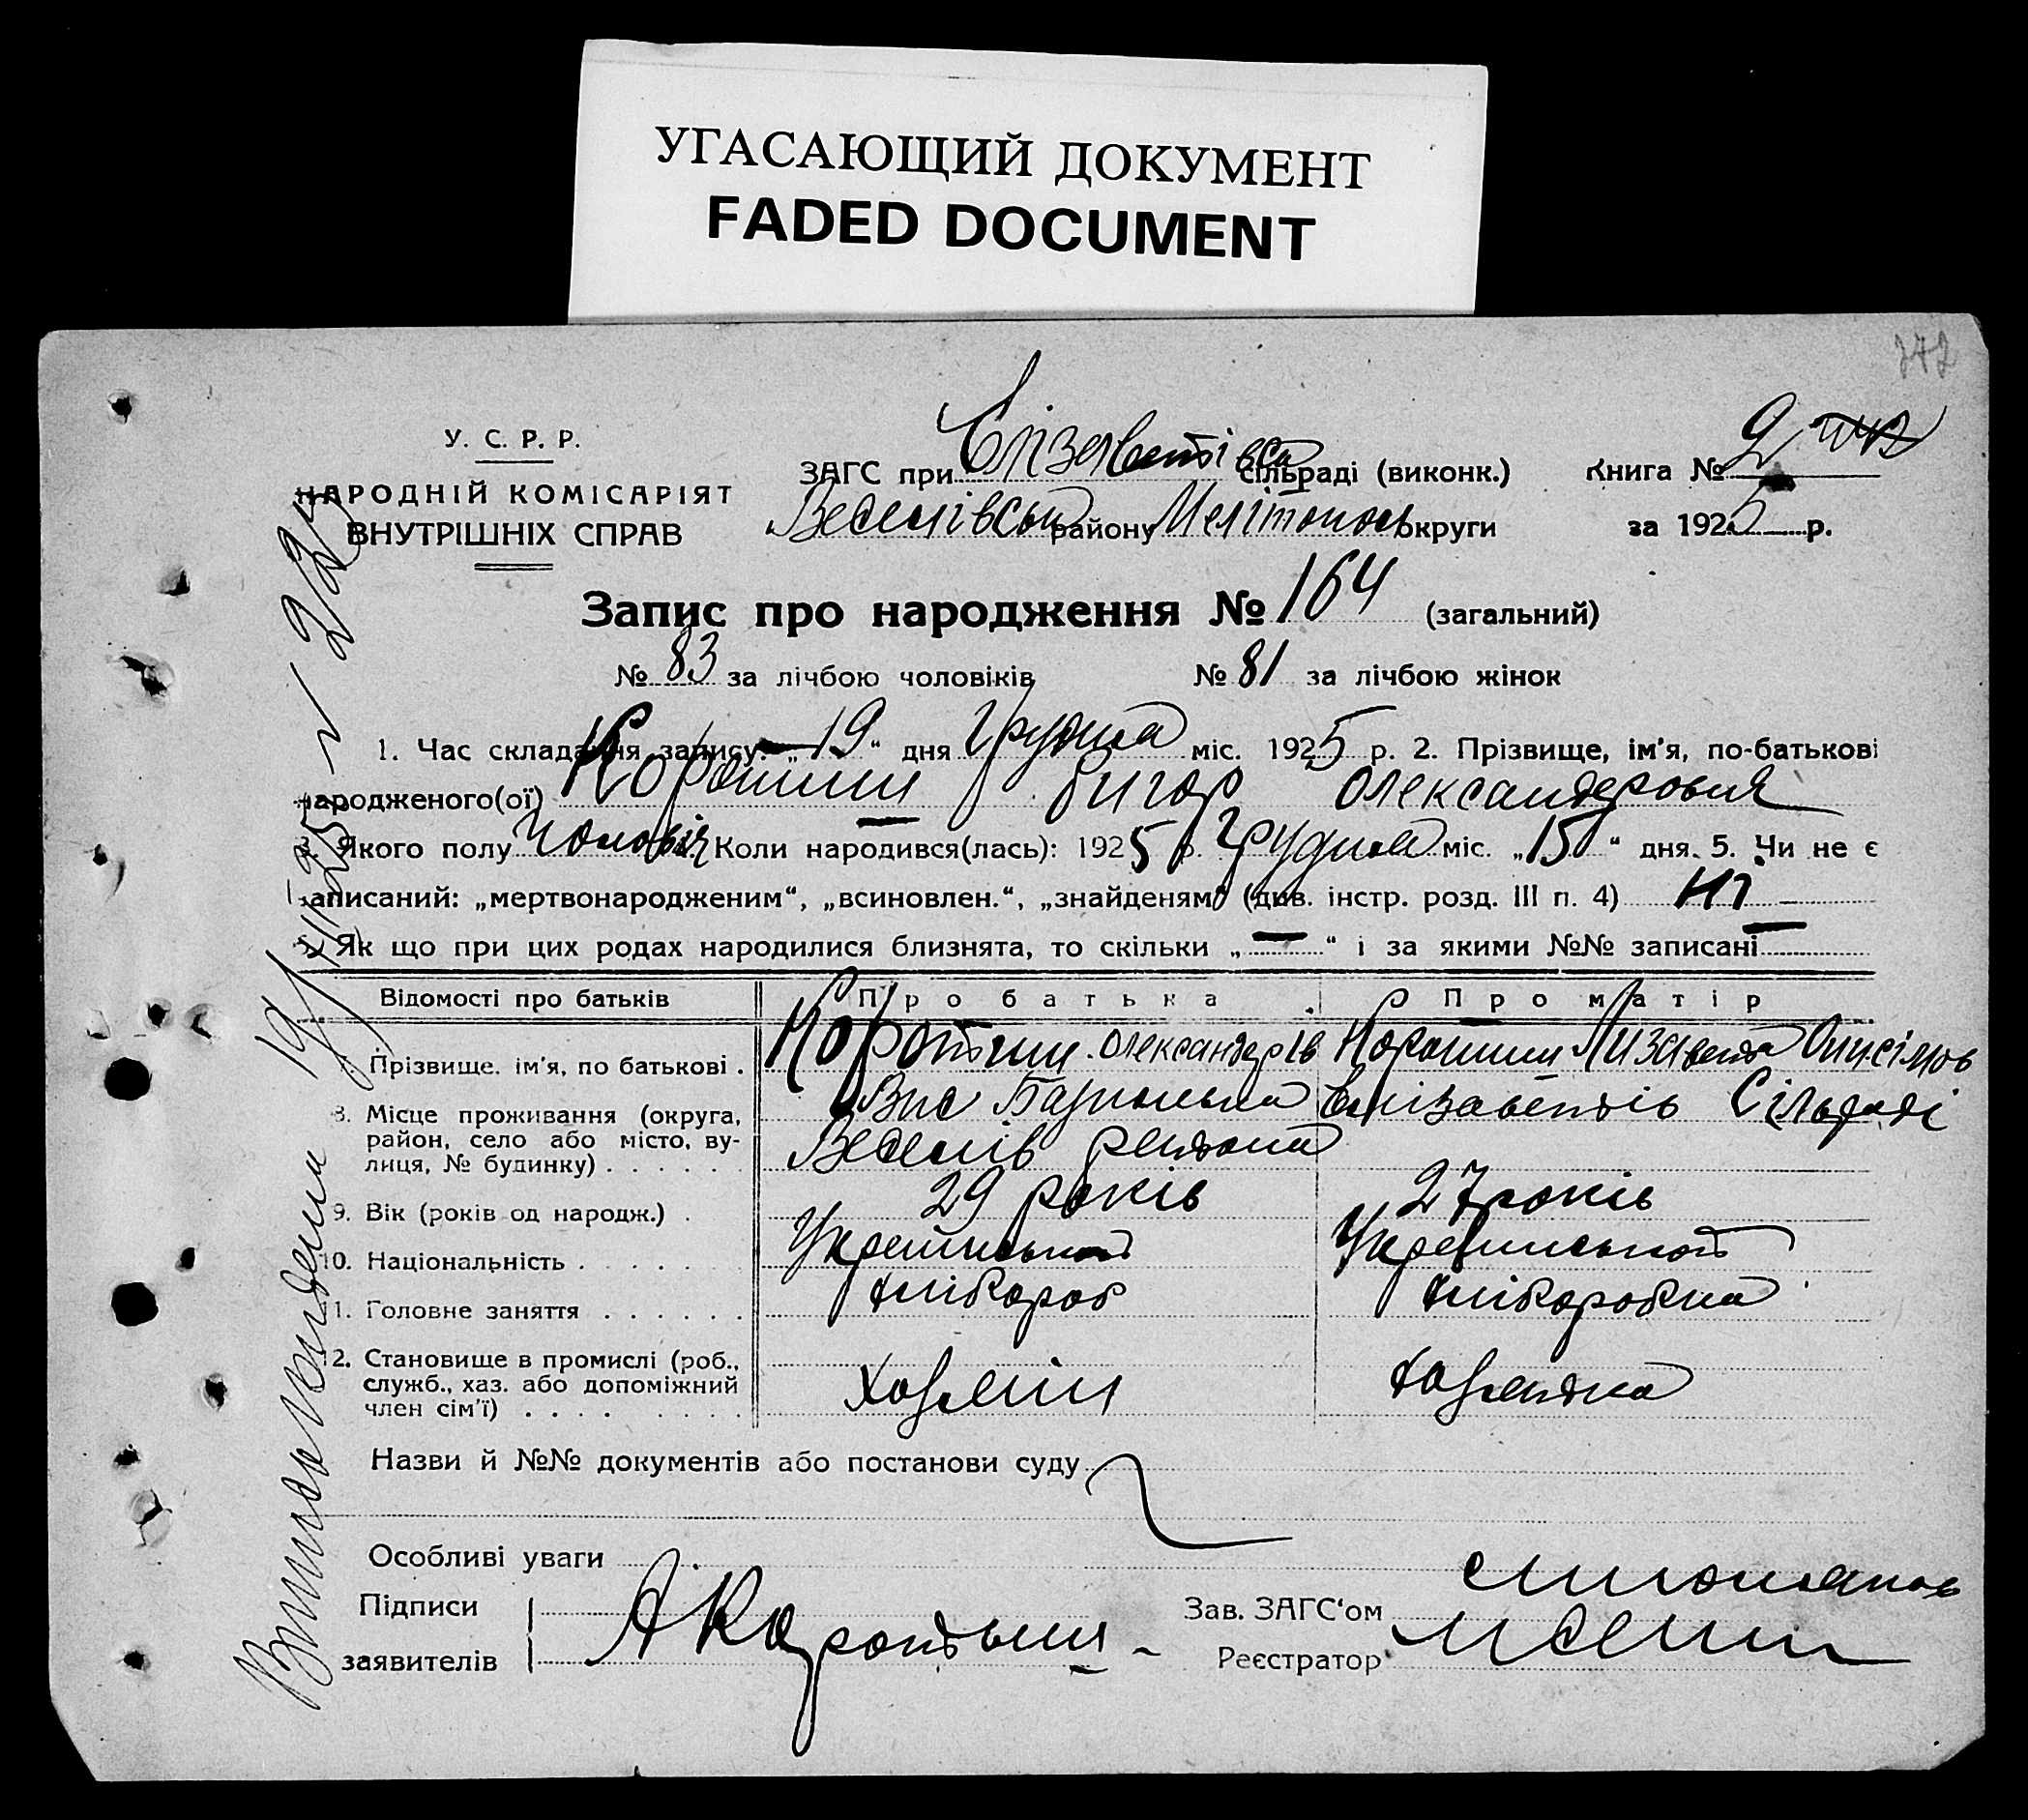 УГАСАЮЩИЙ ДОКУМЕНТ
FADED DOCUMENT
У. С. Р. Р.
НАРОДНІЙ КОМІСАРІЯТ
ВНУТРІШНІХ СПРАВ
ЗАГС при Єлізаветівськ сільраді (виконк.) Книга № 2
Веселівськ району Мелітопольс округи за 1925 р.
Запис про народження № 164 (загальний)
№ 83 за лічбою чоловіків № 81 за лічбою жінок
1. Час складання запису: „19“ дня Грудня міс. 1925 р. 2. Прізвище, ім'я, по-батькові
народженого(ої) Олександрович
Якого полу Чоловіч Коли народився(лась): 1925 р. Грудня міс. „15“ дня. 5. Чи не є
записаний: „мертвонародженим“, „всиновлен.“, „знайденям“ (див. інстр. розд. III п. 4) Ні
Як що при цих родах народилися близнята, то скільки „—“ і за якими №№ записані —
Відомості про батьків Про батька Про матір
Прізвище, ім'я, по батькові . Коротчин Олександер Лизавета Онисімов
8. Місце проживання (округа, район, село або місто, вулиця, № будинку) Єлізаветів Сільраді
Веселів района
9. Вік (років од народж.) . 29 років 27 років
10. Національність Українська Українська
11. Головне заняття хлібороб хліборобка
12. Становище в промислі (роб., служб., хаз. або допоміжний член сім'ї) Хазяїн Хазяйка
Назви й №№ документів або постанови суду
Особливі уваги
Підписи
заявителів
Зав. ЗАГС‘ом
Реєстратор